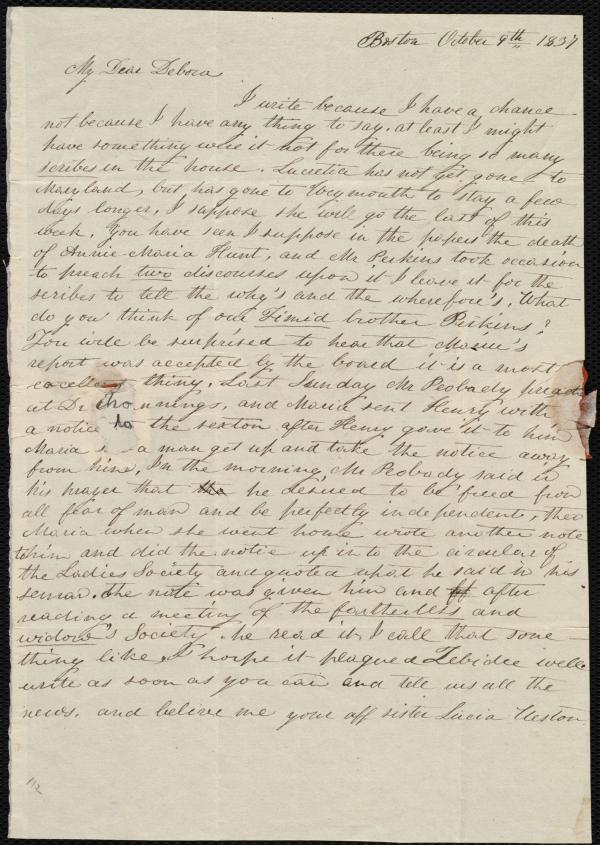 Boston October 9th 1837
My Dear Debora
I write because I have a chance
not because I have any thing to say. at least I might
have something were it not for there being so many
scribes in the house. Lucretia has not yet gone to
Maryland, but has gone to Weymouth to stay a few
days longer, I suppose she will go the last of this
week. You have seen I suppose in the papers the death
of Annie Maria Hunt, and Mr Perkins took occasion
to preach two discourses upon it I leave it for the
scribes to tell the why's and the wherefore's. What
do you think of our Timid brother Perkins?
You will be surprised to hear that Maria's
report was accepted by the board it is a most
excellent thing. Last Sunday Mr Peobady
at Dr and Maria sent Henry with
a notice to the sexton after Henry gave it to him
Maria a man get up and take the notice away
from him, In the morning Mr Peobady said in
his prayer that the he desired to be freed from
all fear of man and be perfectly independent, then
Maria when she went home wrote another note
to him and did the notice up into the circular of
the Ladies Society and quoted what he said in his
sermon. the note was given him and after
reading a meeting of the fartherless and
widow's Society. he read it, I call that some-
thing like, I horpe it plagued Zebidee well
write as soon as you can and tell us all the
news. and belive me your aff sister Lucia Weston
112